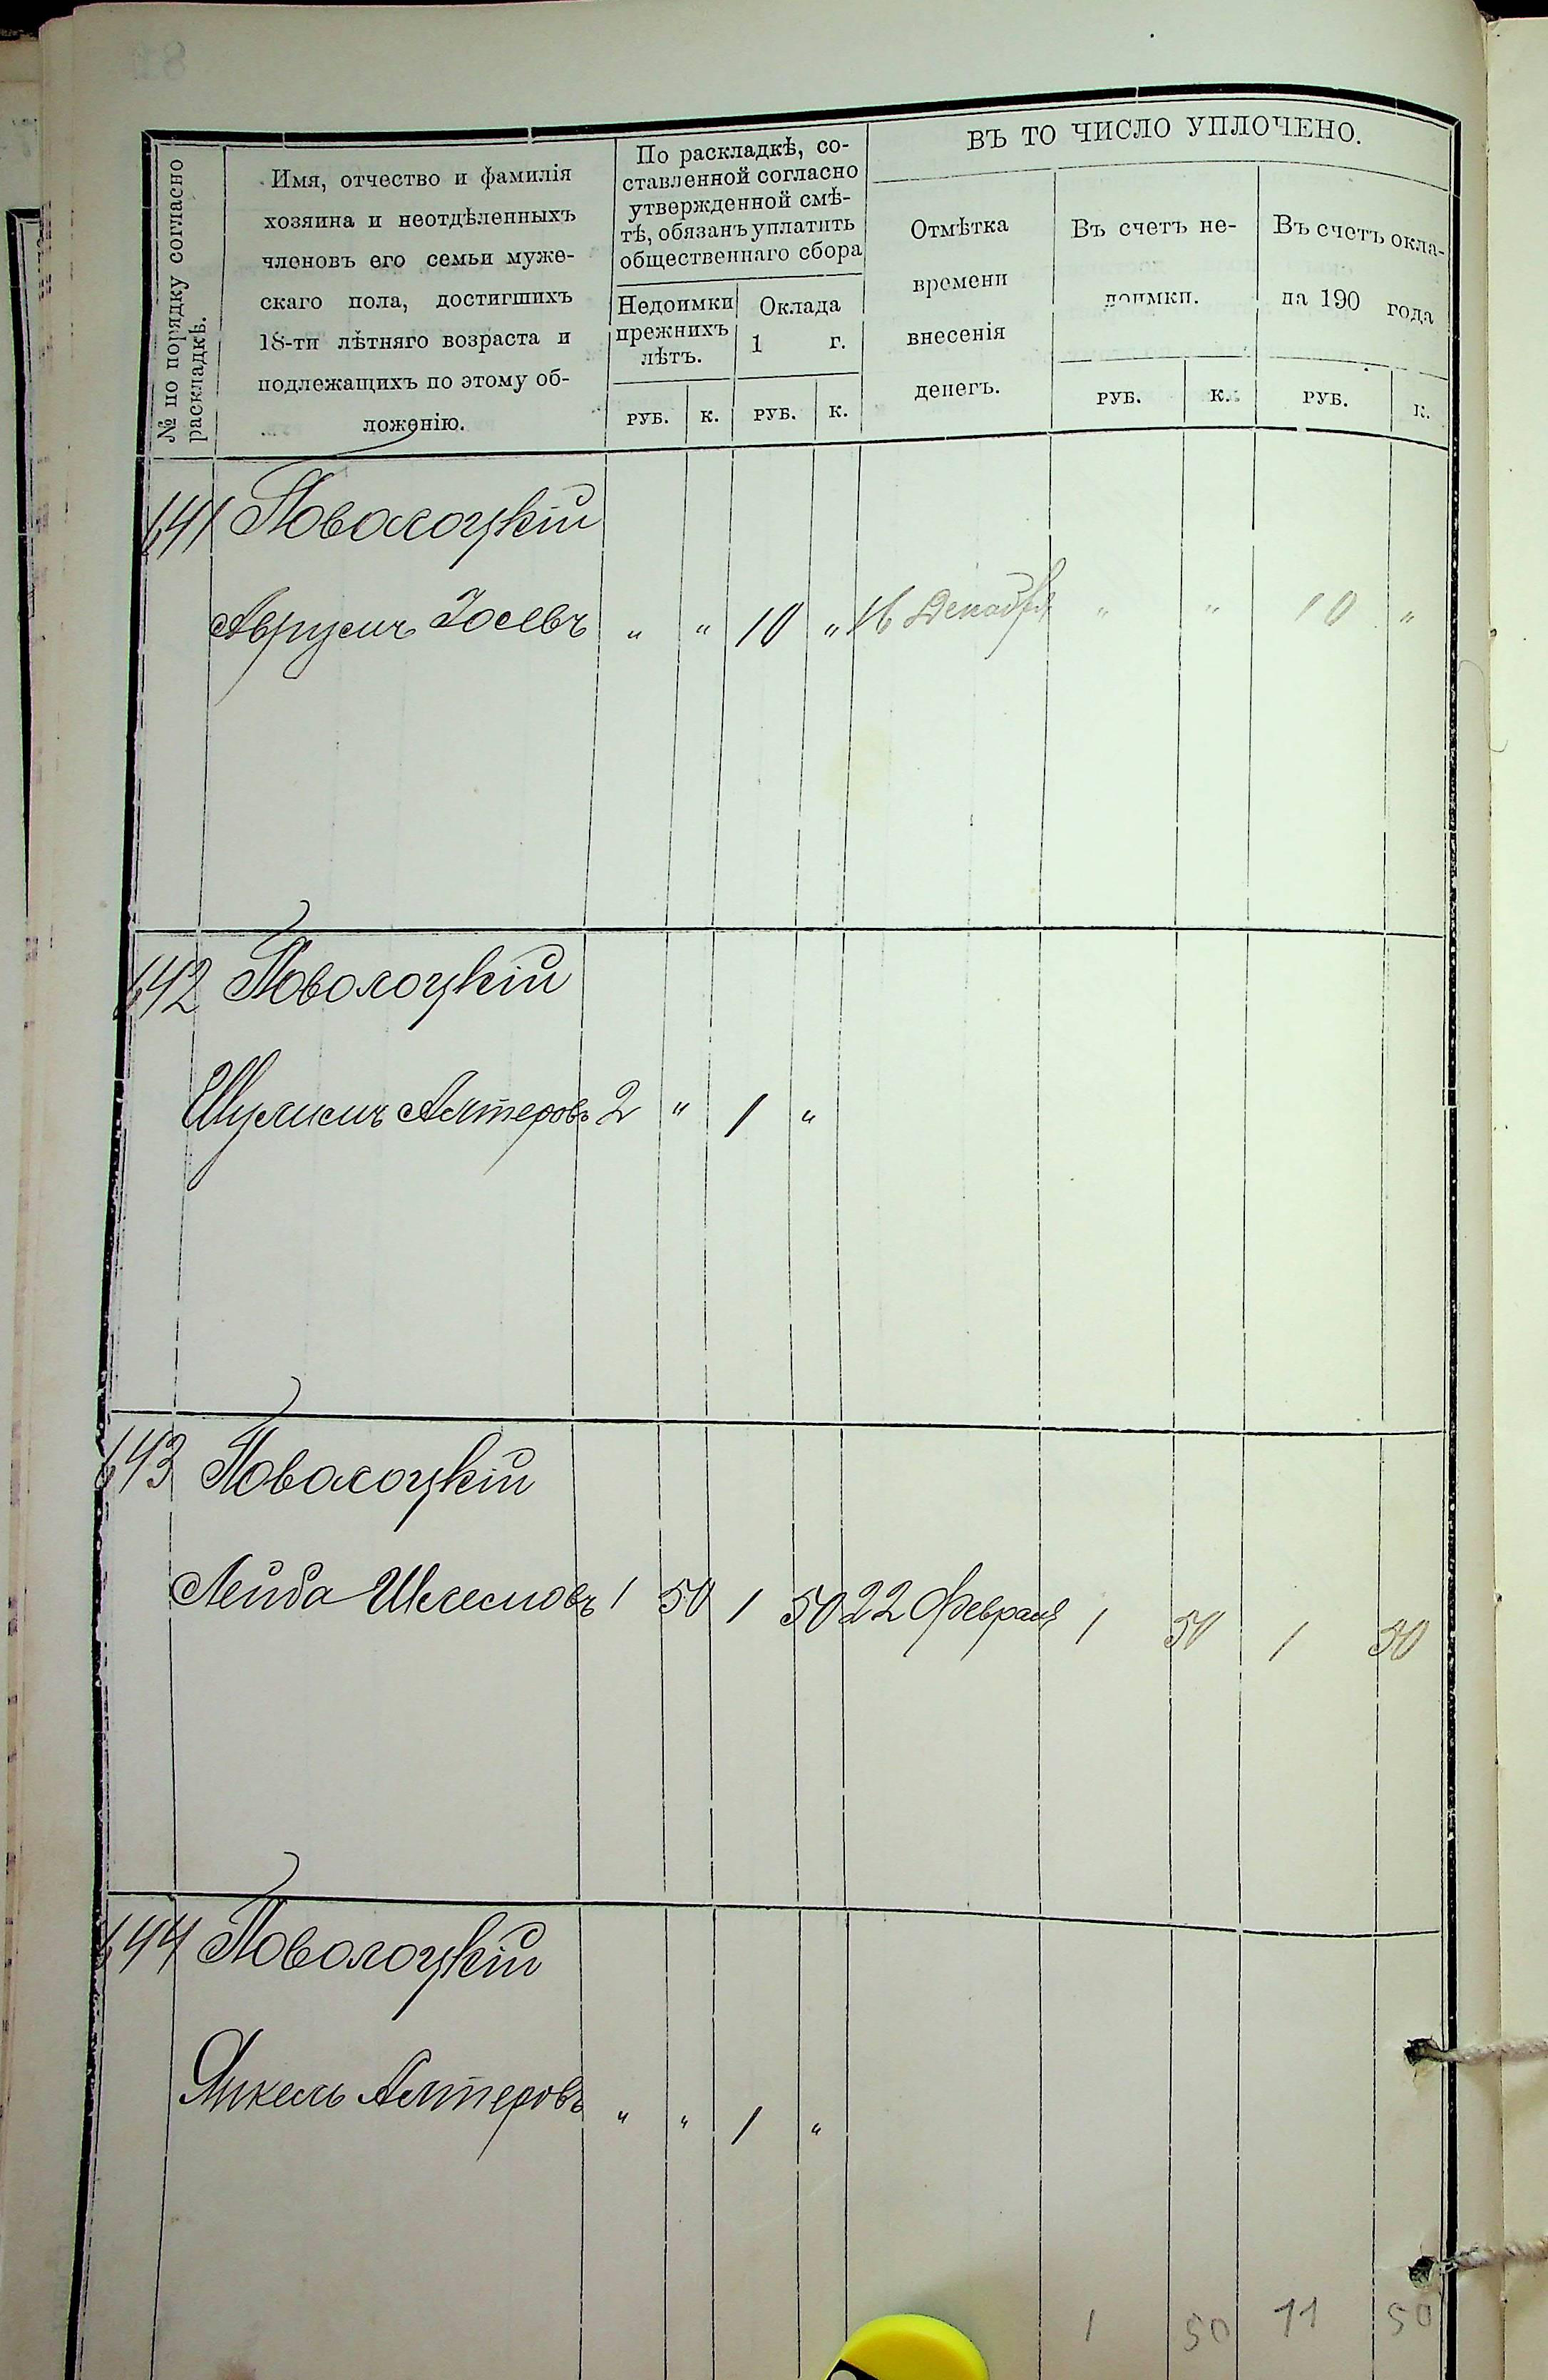 № по порядку согласно
раскладкѣ.
Имя, отчество и фамилія
хозяина и неотдѣленныхъ
членовъ его семьи муже-
скаго пола, достигшихъ
18-ти лѣтняго возраста и
подлежащихъ по этому об-
ложенію.
По раскладкѣ, со-
ставленной согласно
утвержденной смѣ-
тѣ, обязанъ уплатить
общественнаго сбора
Недоимки
прежнихъ
лѣтъ.
Оклада
1 г.
РУБ. К. РУБ. К.
ВЪ ТО ЧИСЛО УПЛОЧЕНО.
Отмѣтка
времени
внесенія
денегъ.
Въ счетъ не-
доимки.
РУБ. К.
Въ счетъ окла-
да 190 года
РУБ. К.
641 Поволоцкій
Аврумъ Іосевъ " " 10 " 16 Декабря " " 10 "
642 Поволоцкій
Шулимъ Алтеровъ 2 " 1 "
643 Поволоцкій
Лейба Шлемовъ 1 50 1 50 22 Февраля 1 50 1 50
644 Поволоцкій
Янкель Алтеровъ " " 1 "
1 50 11 50